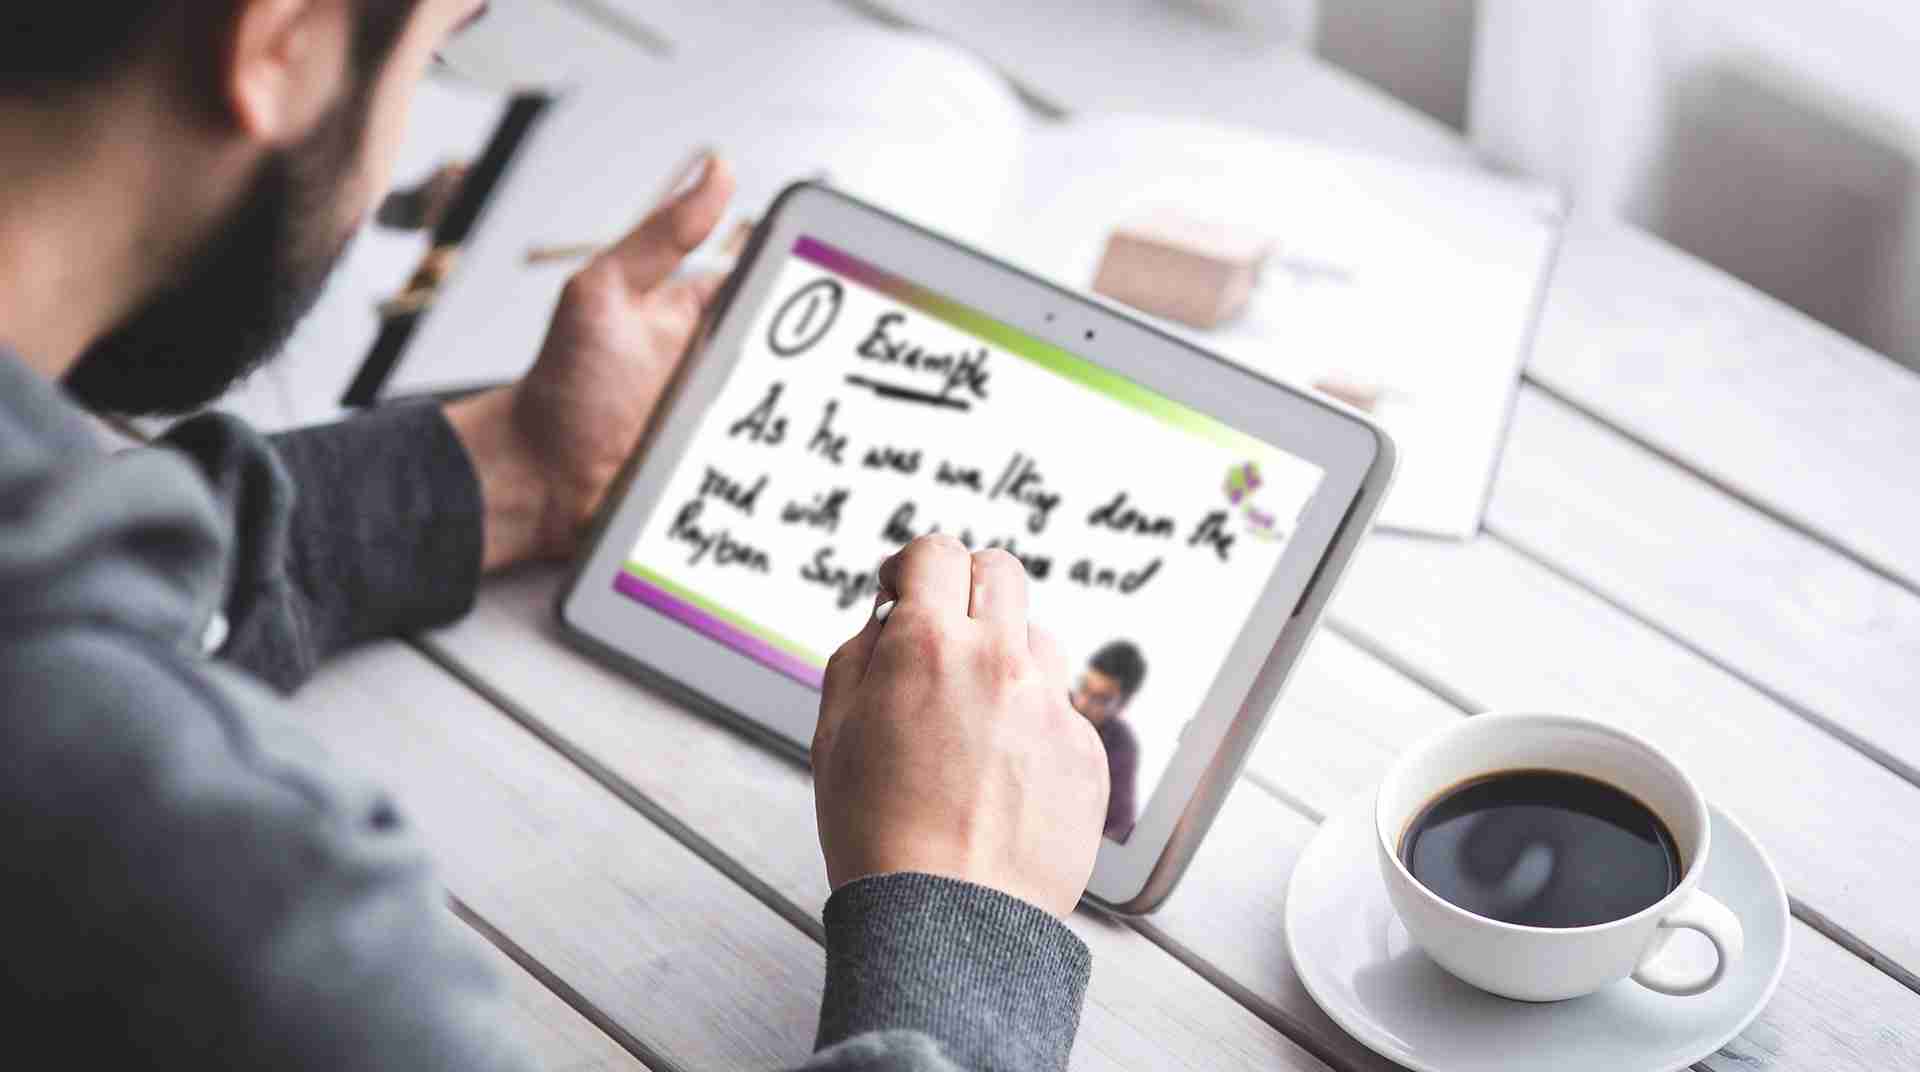 1 Example
As he was walking down the
road with and
Rayban